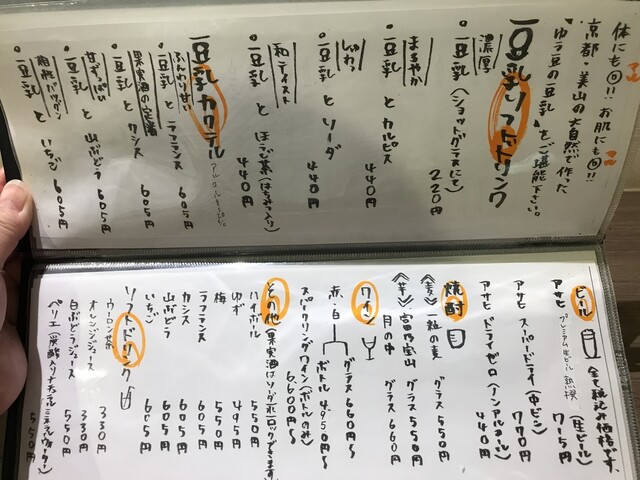 体にも◎!! お肌にも◎!!
京都・美山の大自然で作った
"ゆう豆の豆乳"をご堪能下さい。
豆乳ソフトドリンク
濃厚
・豆乳(ショットグラスにて) 220円
まろやか
・豆乳とカルピス 440円
しゅわっ
・豆乳とソーダ 440円
和テイスト
・豆乳とほうじ茶(はちみつ入り) 440円
豆乳カクテル
ふんわり甘い
・豆乳とラフランス 605円
果実酒の定番
・豆乳とカシス 605円
甘ずっぱい
・豆乳と山ぶどう 605円
相性バツグン
・豆乳といちご 605円
全て税込み価格です。
ビール
アサヒ プレミアム生ビール 熟撰 (生ビール) 715円
アサヒ スーパードライ(中ビン) 770円
アサヒ ドライゼロ(ノンアルコール) 440円
焼酎
《麦》一粒の麦 グラス550円
《芋》富乃宝山 グラス550円
月の中 グラス660円
ワイン
赤・白 グラス660円〜
ボトル4950円〜
スパークリングワイン(ボトルのみ) 6600円〜
その他(果実酒はソーダ・ロックできます)
ハイボール 550円
ゆず 495円
梅 550円
ラフランス 605円
カシス 605円
山ぶどう 605円
いちご 605円
ソフトドリンク
ウーロン茶 330円
オレンジジュース 330円
白ぶどうジュース 550円
ペリエ(炭酸入りナチュラルミネラルウォーター) 550円